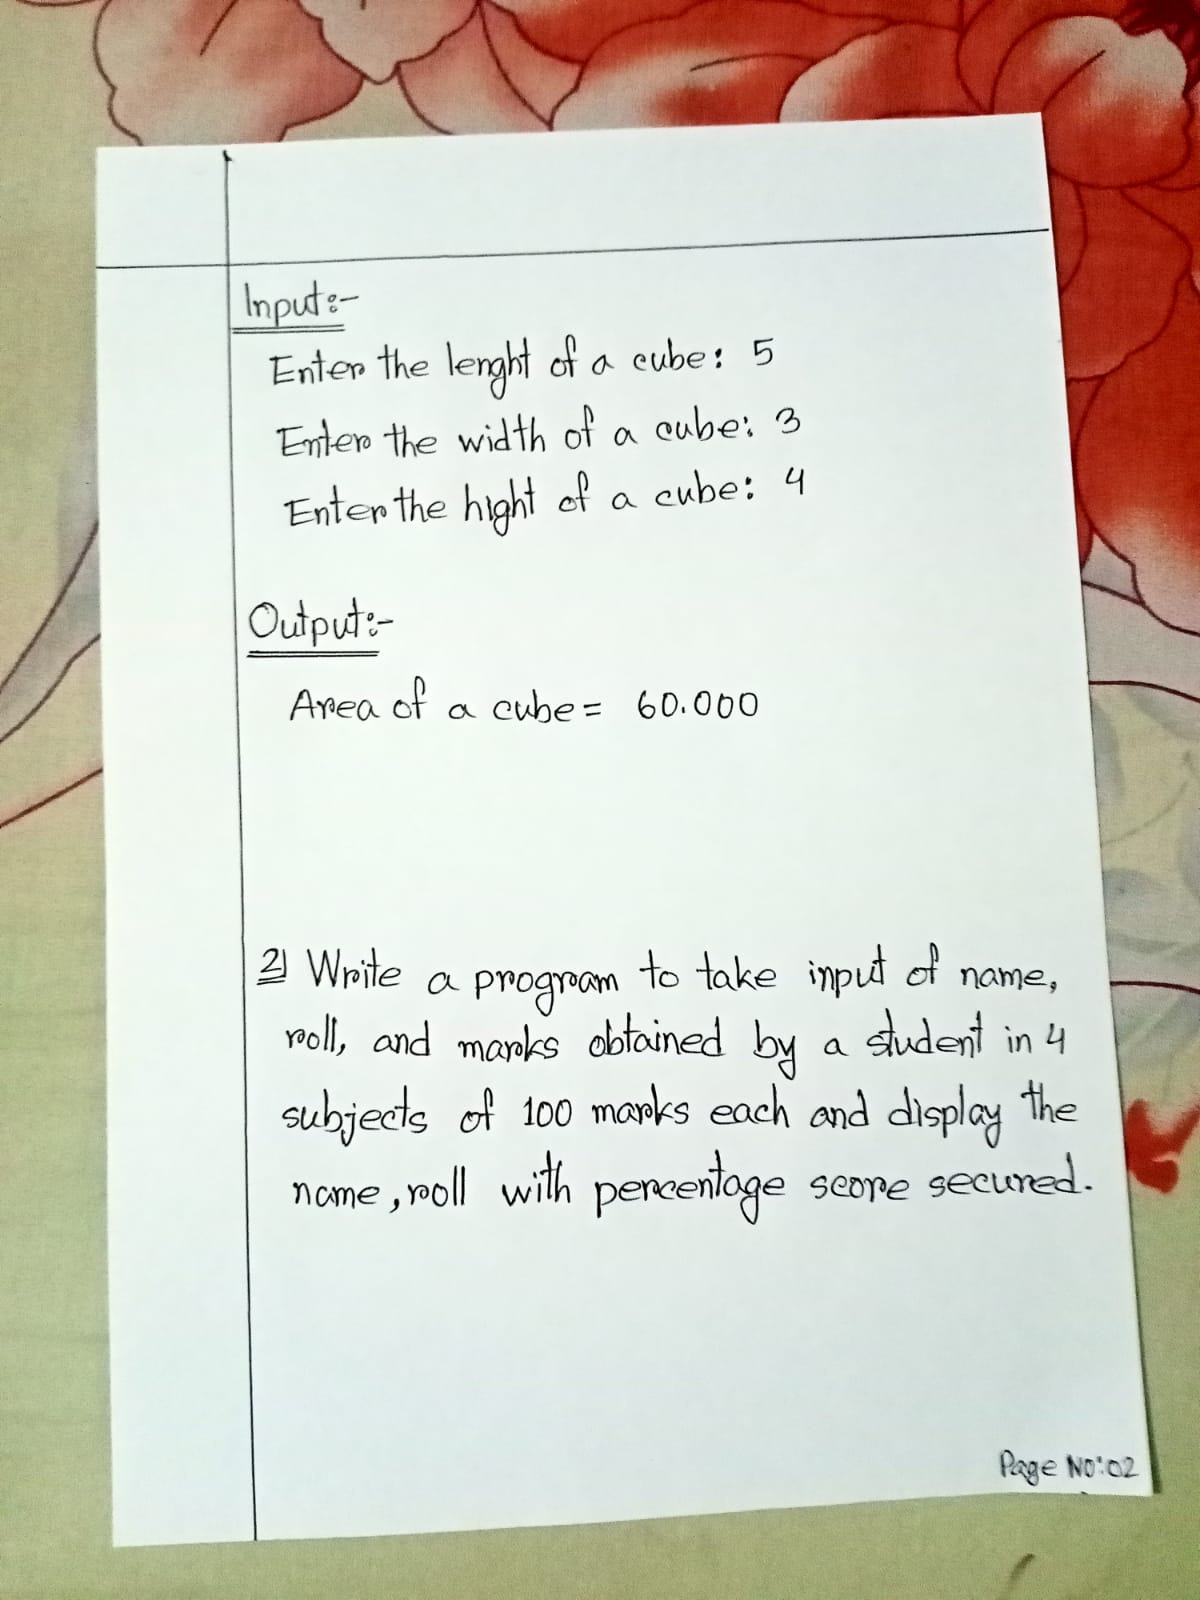 Input:-
Enter the lenght of a cube: 5
Enter the width of a cube: 3
Enter the hight of a cube: 4
Output:-
Area of a cube = 60.000
2) Write a program to take input of name,
roll, and marks obtained by a student in 4
subjects of 100 marks each and display the
name, roll with percentage score secured.
Page No:02